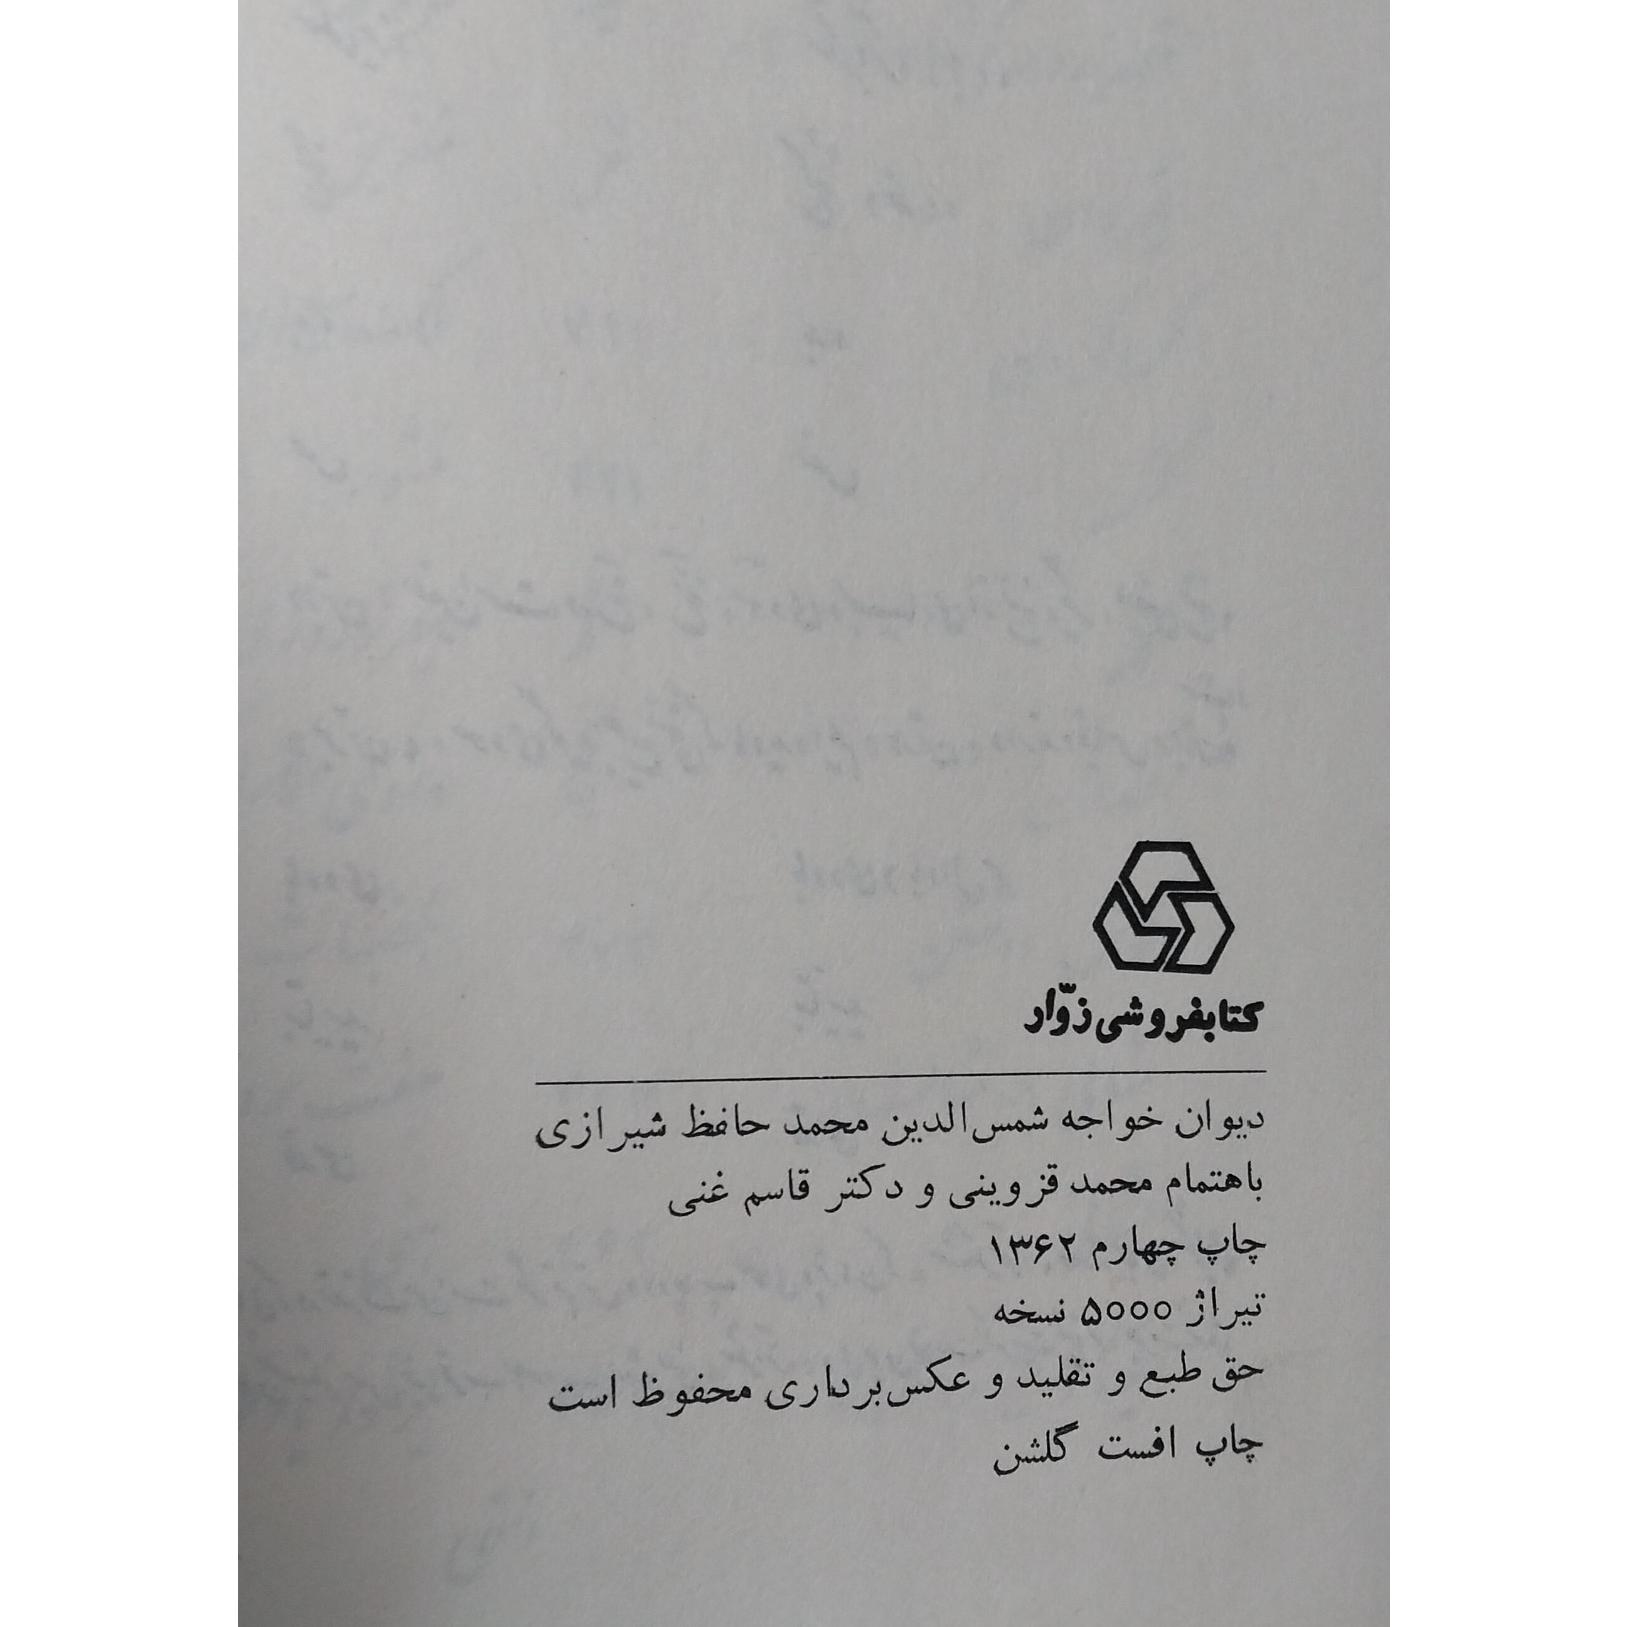 کتابفروشی زوّار
دیوان خواجه شمس‌الدین محمد حافظ شیرازی
باهتمام محمد قزوینی و دکتر قاسم غنی
چاپ چهارم ۱۳۶۲
تیراژ ۵۰۰۰ نسخه
حق طبع و تقلید و عکس‌برداری محفوظ است
چاپ افست گلشن